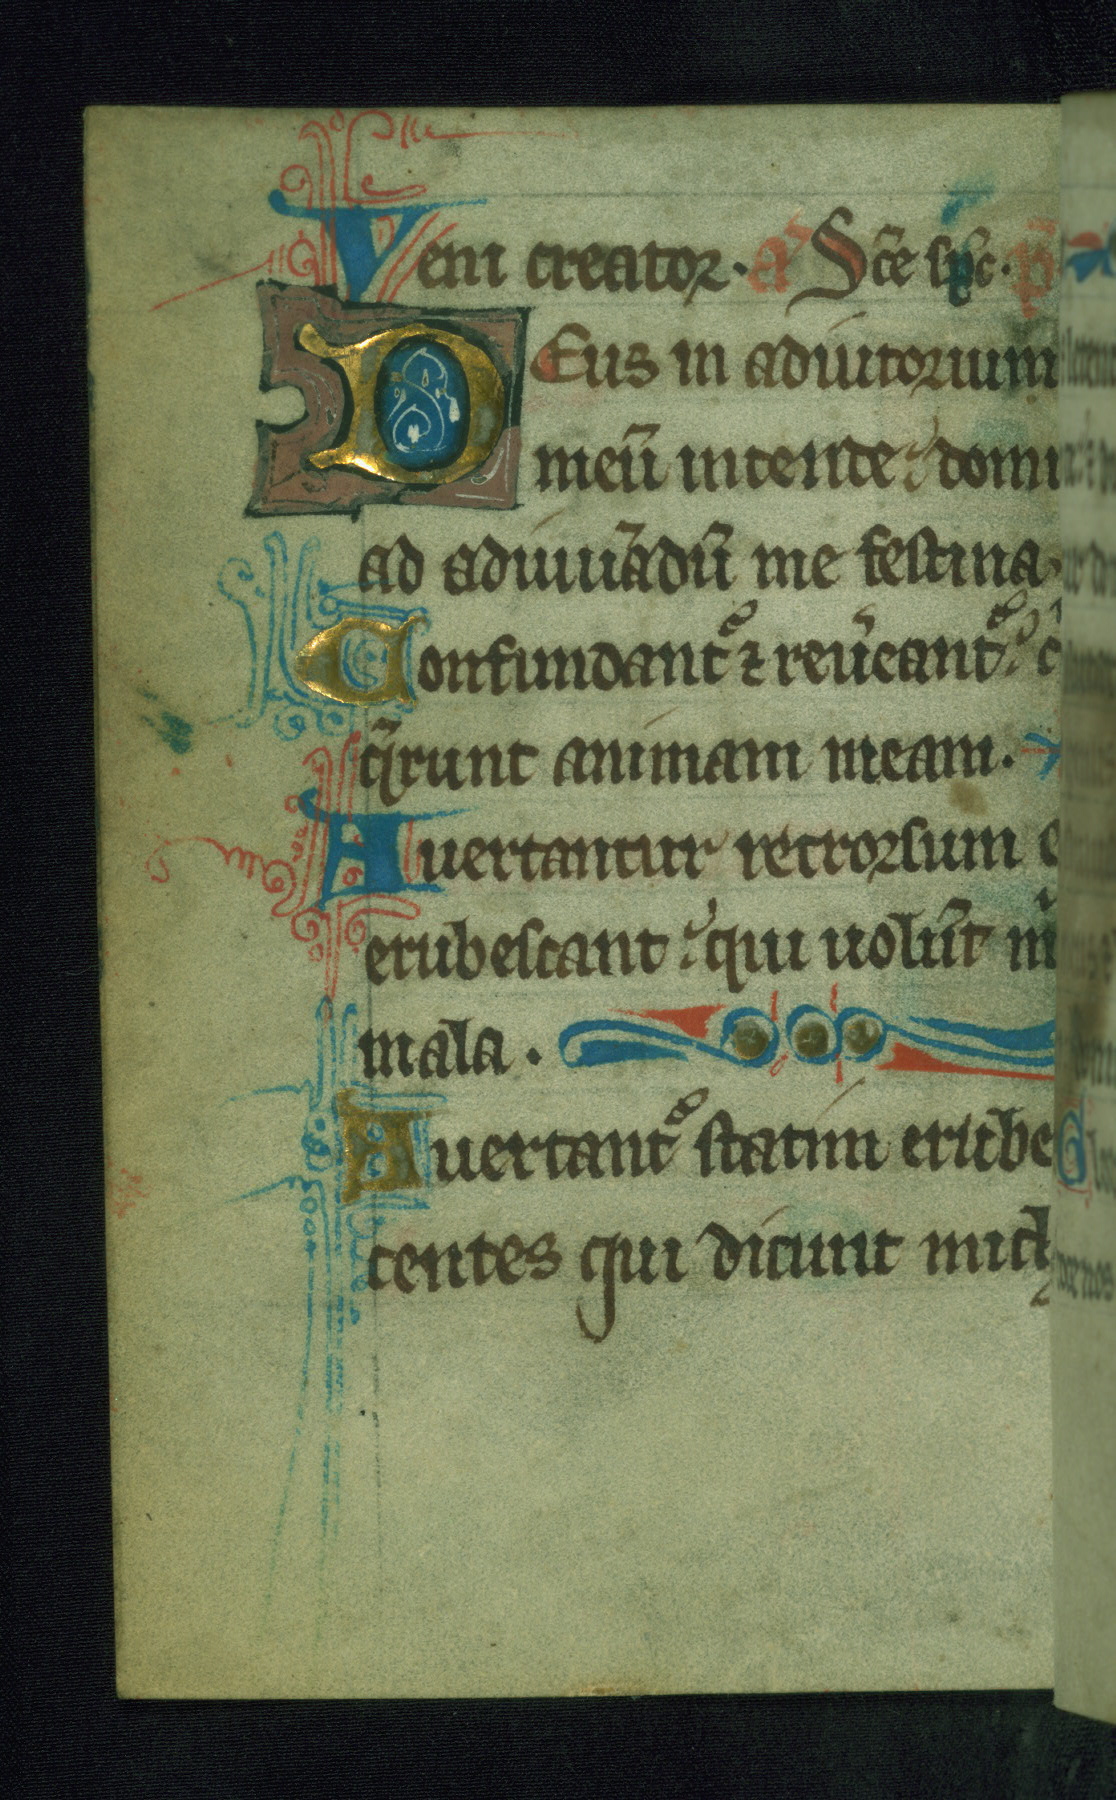 Veni creator. a͛ Sc̄e sp̄c. p̄
DEus in adiutorium
meū intende ⸵ domi
ad adiuuādū me festina
Confundant᷑ ⁊ reu̾eant᷑ ⸵
q̄runt animam meam.
Auertantur retrorsum
erubescant ⸵ qui uolūt m̄
mala.
Auertant᷑ statim erube
centes qui dicunt mich